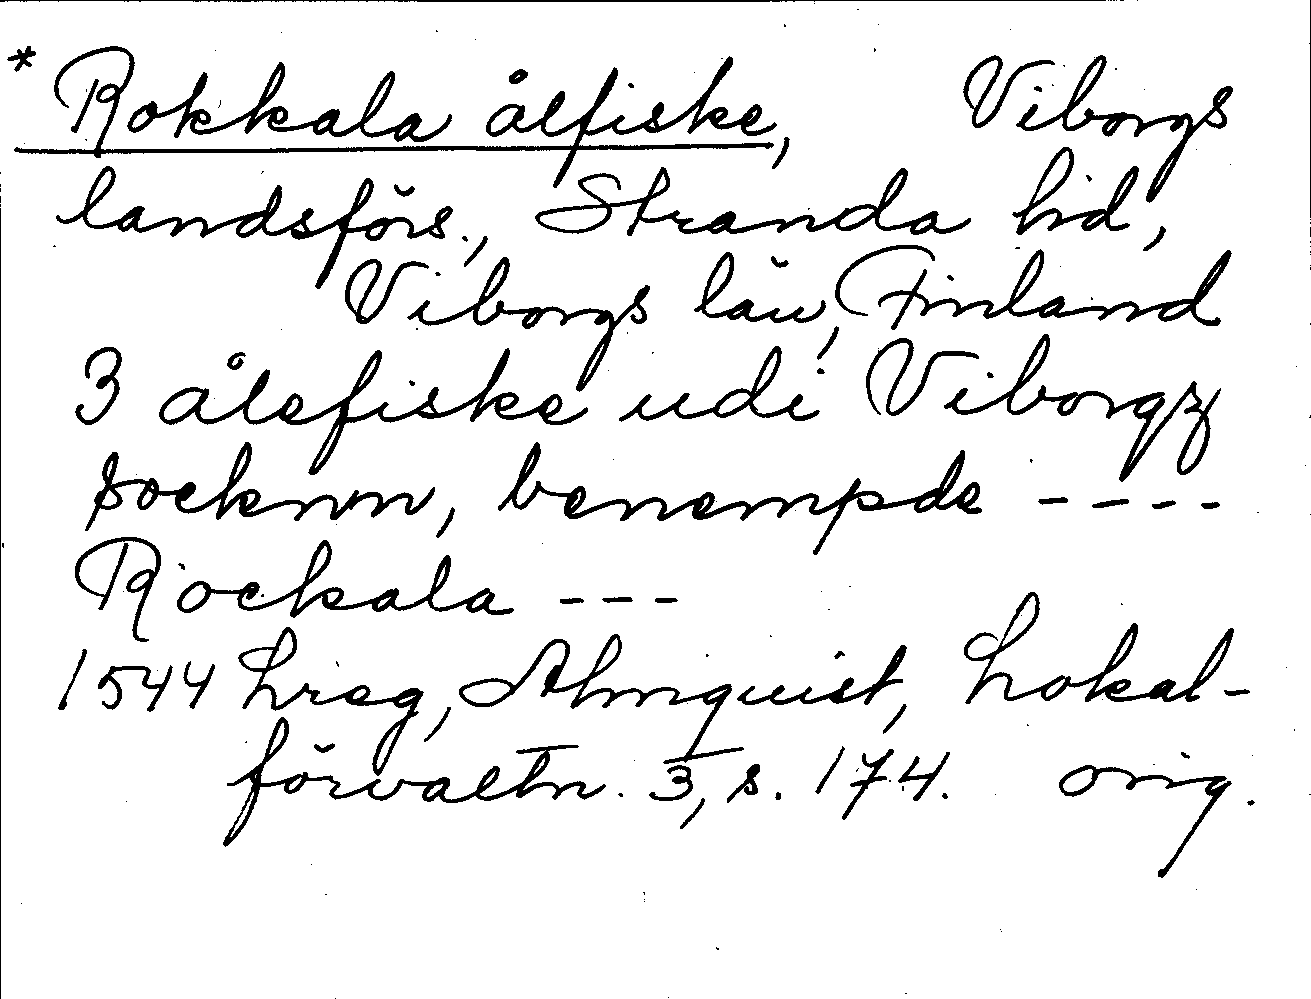 * Rokkala ålfiske, Viborgs
landsförs., Stranda hd,
Viborgs län, Finland
3 ålefiske udi Viborgz
socknnn, benempde ----
Rockala ---
1544 hreg, Almquist, Lokal-
förvaltn. 3, s. 174. orig.